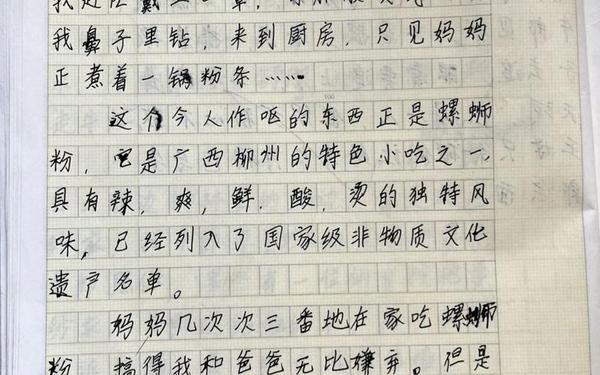 我鼻子里钻，来到厨房，只见妈妈
正煮着一锅粉条……
这个今人作呕的东西正是螺蛳
粉，它是广西柳州的特色小吃之一，
具有辣，爽，鲜，酸，烫的独特风
味，已经列入了国家级非物质文化
遗产名单。
妈妈几次次三番地在家吃螺蛳
粉，搞得我和爸爸无比嫌弃。但是